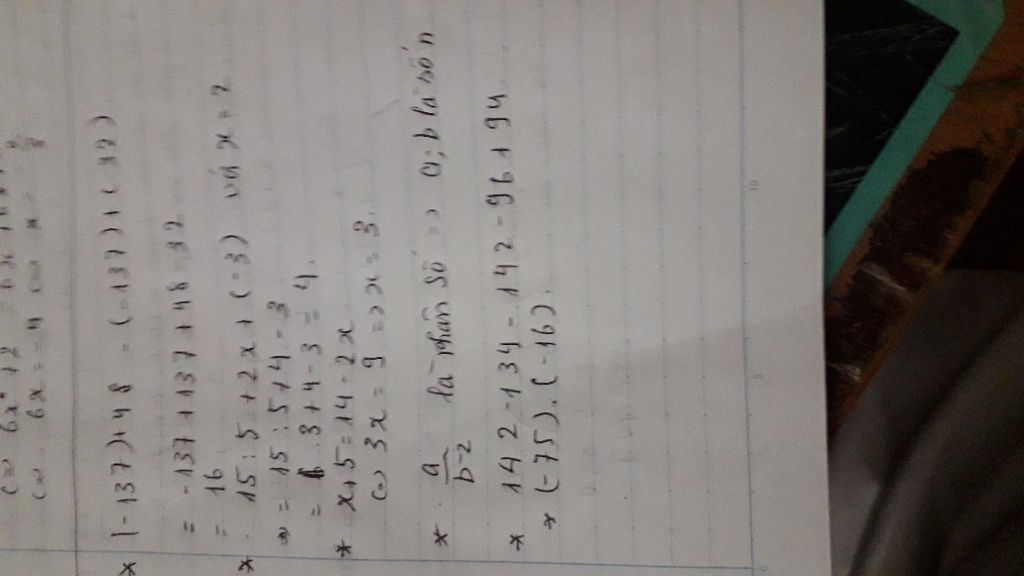 6x = -4 (=) x =
* (-137)+48 - (-137)+(-32)
= -137+137+48-32
= 16
* 15:5+2x+(-3) với x=2
=) = 15:5+4-3
= 3+4-3 = 4.
* x+5=14-2x
(=) 3x=9 => x=3.
* a/b-2 là phân số => a;b là số n
* 142-134-142-96+94
* (-75).(-16)